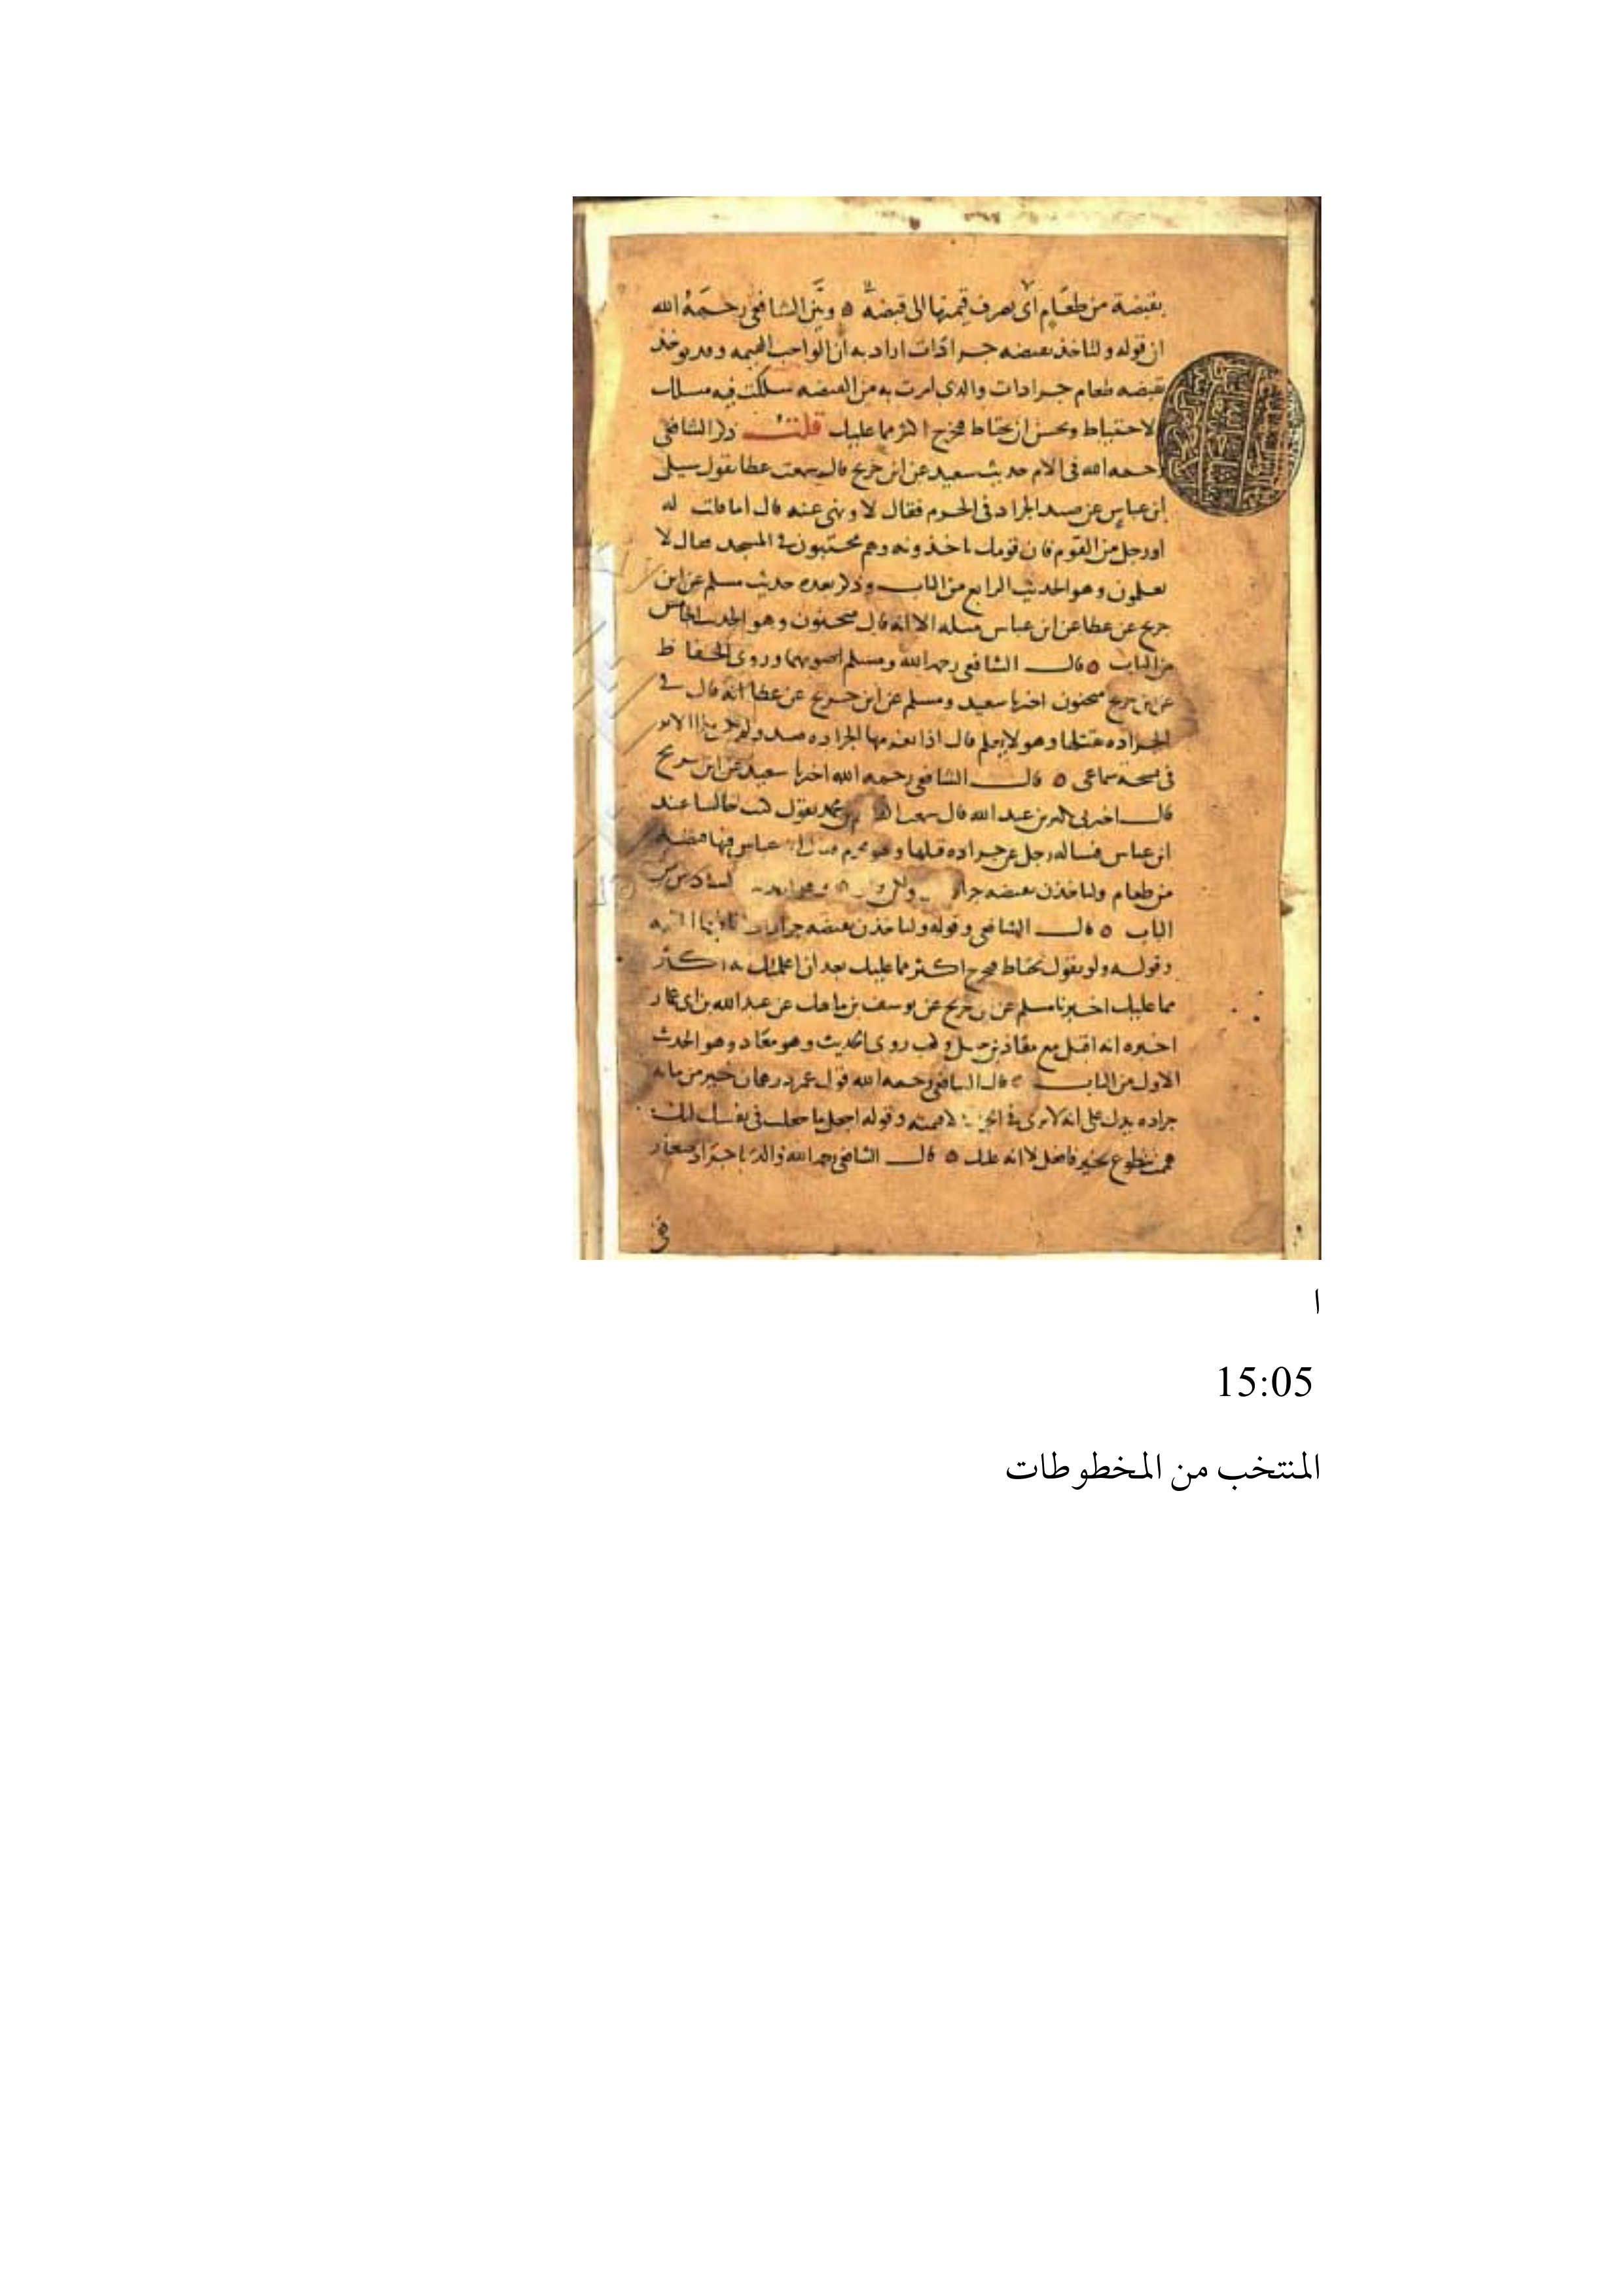 بقبضة من طعام اى يصرف قيمتها الى قبضة ٥ وبين الشافعى رحمه الله
ان قوله ولتاخذ بقبضه جرادات اراد به ان الواجب القيمه وقد يوخذ
بقبضه طعام جرادات والذى امرت به من القبضه سلكت فيه مسلك
الاحتياط وبحسن ان يحتاط فيخرج اكثر مما عليك قلت ذكر الشافعى
رحمه الله فى الام حديث سعيد عن ابن جريج قال سمعت عطا يقول سيل
ابن عباس عن صيد الجراد فى الحرم فقال لا ونهى عنه قال اما قلت له
او رجل من القوم فان قومك ياخذونه وهم محتبون فى المسجد فقال لا
يعلمون وهو الحديث الرابع من الباب وذكر بعده حديث مسلم عن ابن
جريج عن عطا عن ابن عباس مثله الا انه قال منحنون وهو الحديث الخامس
من الباب ٥ قال الشافعى رحمه الله ومسلم اصوبهما وروى الحفاظ
عن ابن جريج منحنون اخبرنا سعيد ومسلم عن ابن جريج عن عطا انه قال فى
الجراده يقتلها وهو لا يعلم قال اذا يغرمها الجراده صيد
فى نسخة سماعى ٥ قال الشافعى رحمه الله اخبرنا سعيد عن ابن جريج
قال اخبرنى بكير بن عبد الله قال سمعت القاسم بن محمد يقول كنت جالسا عند
ابن عباس فساله رجل عن جراده قتلها وهو محرم فقال ابن عباس فيها قبضه
من طعام ولتاخذن بقبضه جرادات ولكن ولو السادس من
الباب ٥ قال الشافعى وقوله ولتاخذن بقبضه جرادات انما فيها القيمه
وقوله ولو يقول تحتاط فتخرج اكثر مما عليك بعد ان اعلمتك انه اكثر
مما عليك اخبرنا مسلم عن ابن جريج عن يوسف بن ماهك عن عبد الله بن ابى عمار
اخبره انه اقبل مع معاذ بن جبل وكعب روى الحديث وهو معاد وهو الحديث
الاول من الباب ٥ قال الشافعى رحمه الله قول عمر درهمان خير من مايه
جراده يدل على انه لا يرى فى الجراد الا قيمته وقوله اجعل ما جعلت فى نفسك انك
هممت بتطوع بخير فافعل لا انه عليك ٥ قال الشافعى رحمه الله والدبا جراد صغار
فى
ا
15:05
المنتخب من المخطوطات